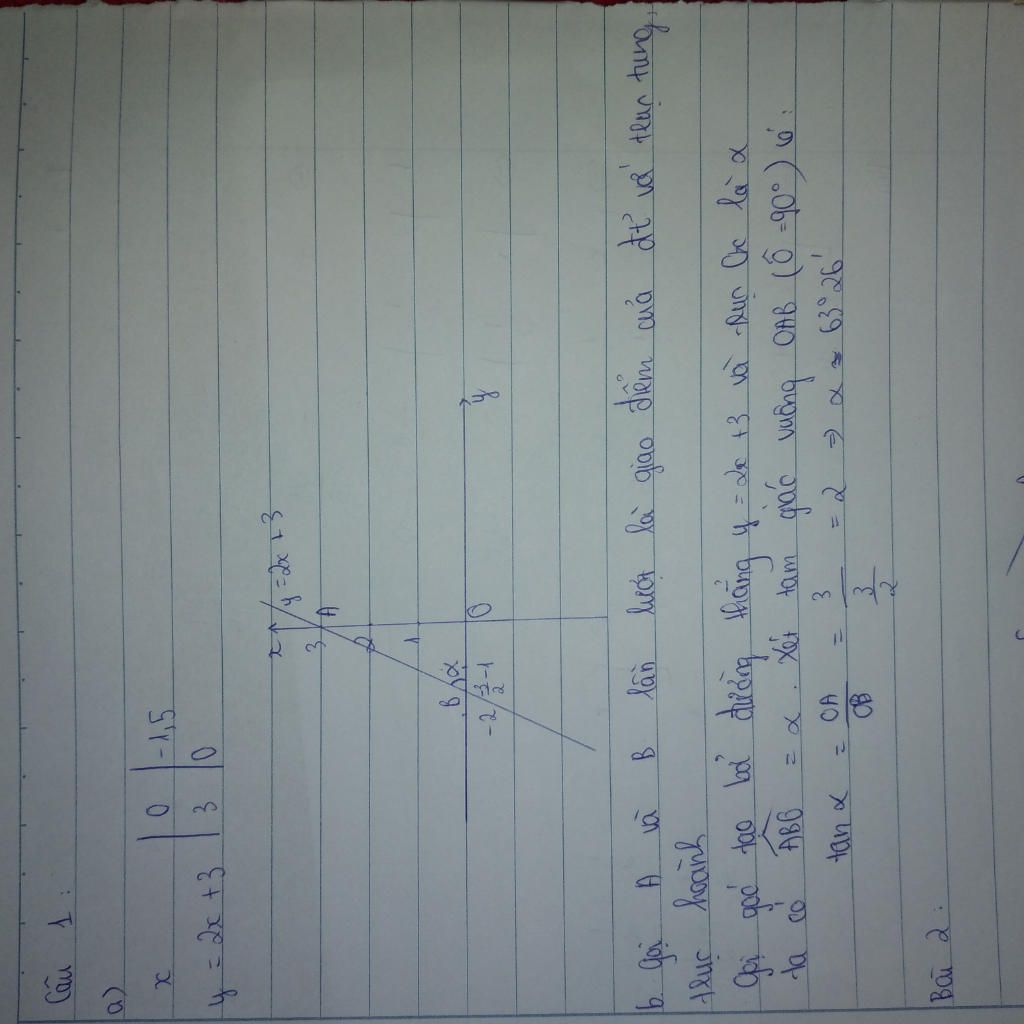 Câu 1 :
a)
x | 0 | -1,5
y = 2x + 3 | 3 | 0
x
y = 2x + 3
3
A
2
1
B
α
-2
-3/2
-1
O
y
b. Gọi A và B lần lượt là giao điểm của đt với trục tung,
trục hoành
Gọi góc tạo bởi đường thẳng y = 2x + 3 và trục Ox là α
ta có ABO = α . Xét tam giác vuông OAB (Ô = 90°) có :
tan α = OA/OB = 3/(3/2) = 2 ⇒ α ≈ 63° 26'
Bài 2 :